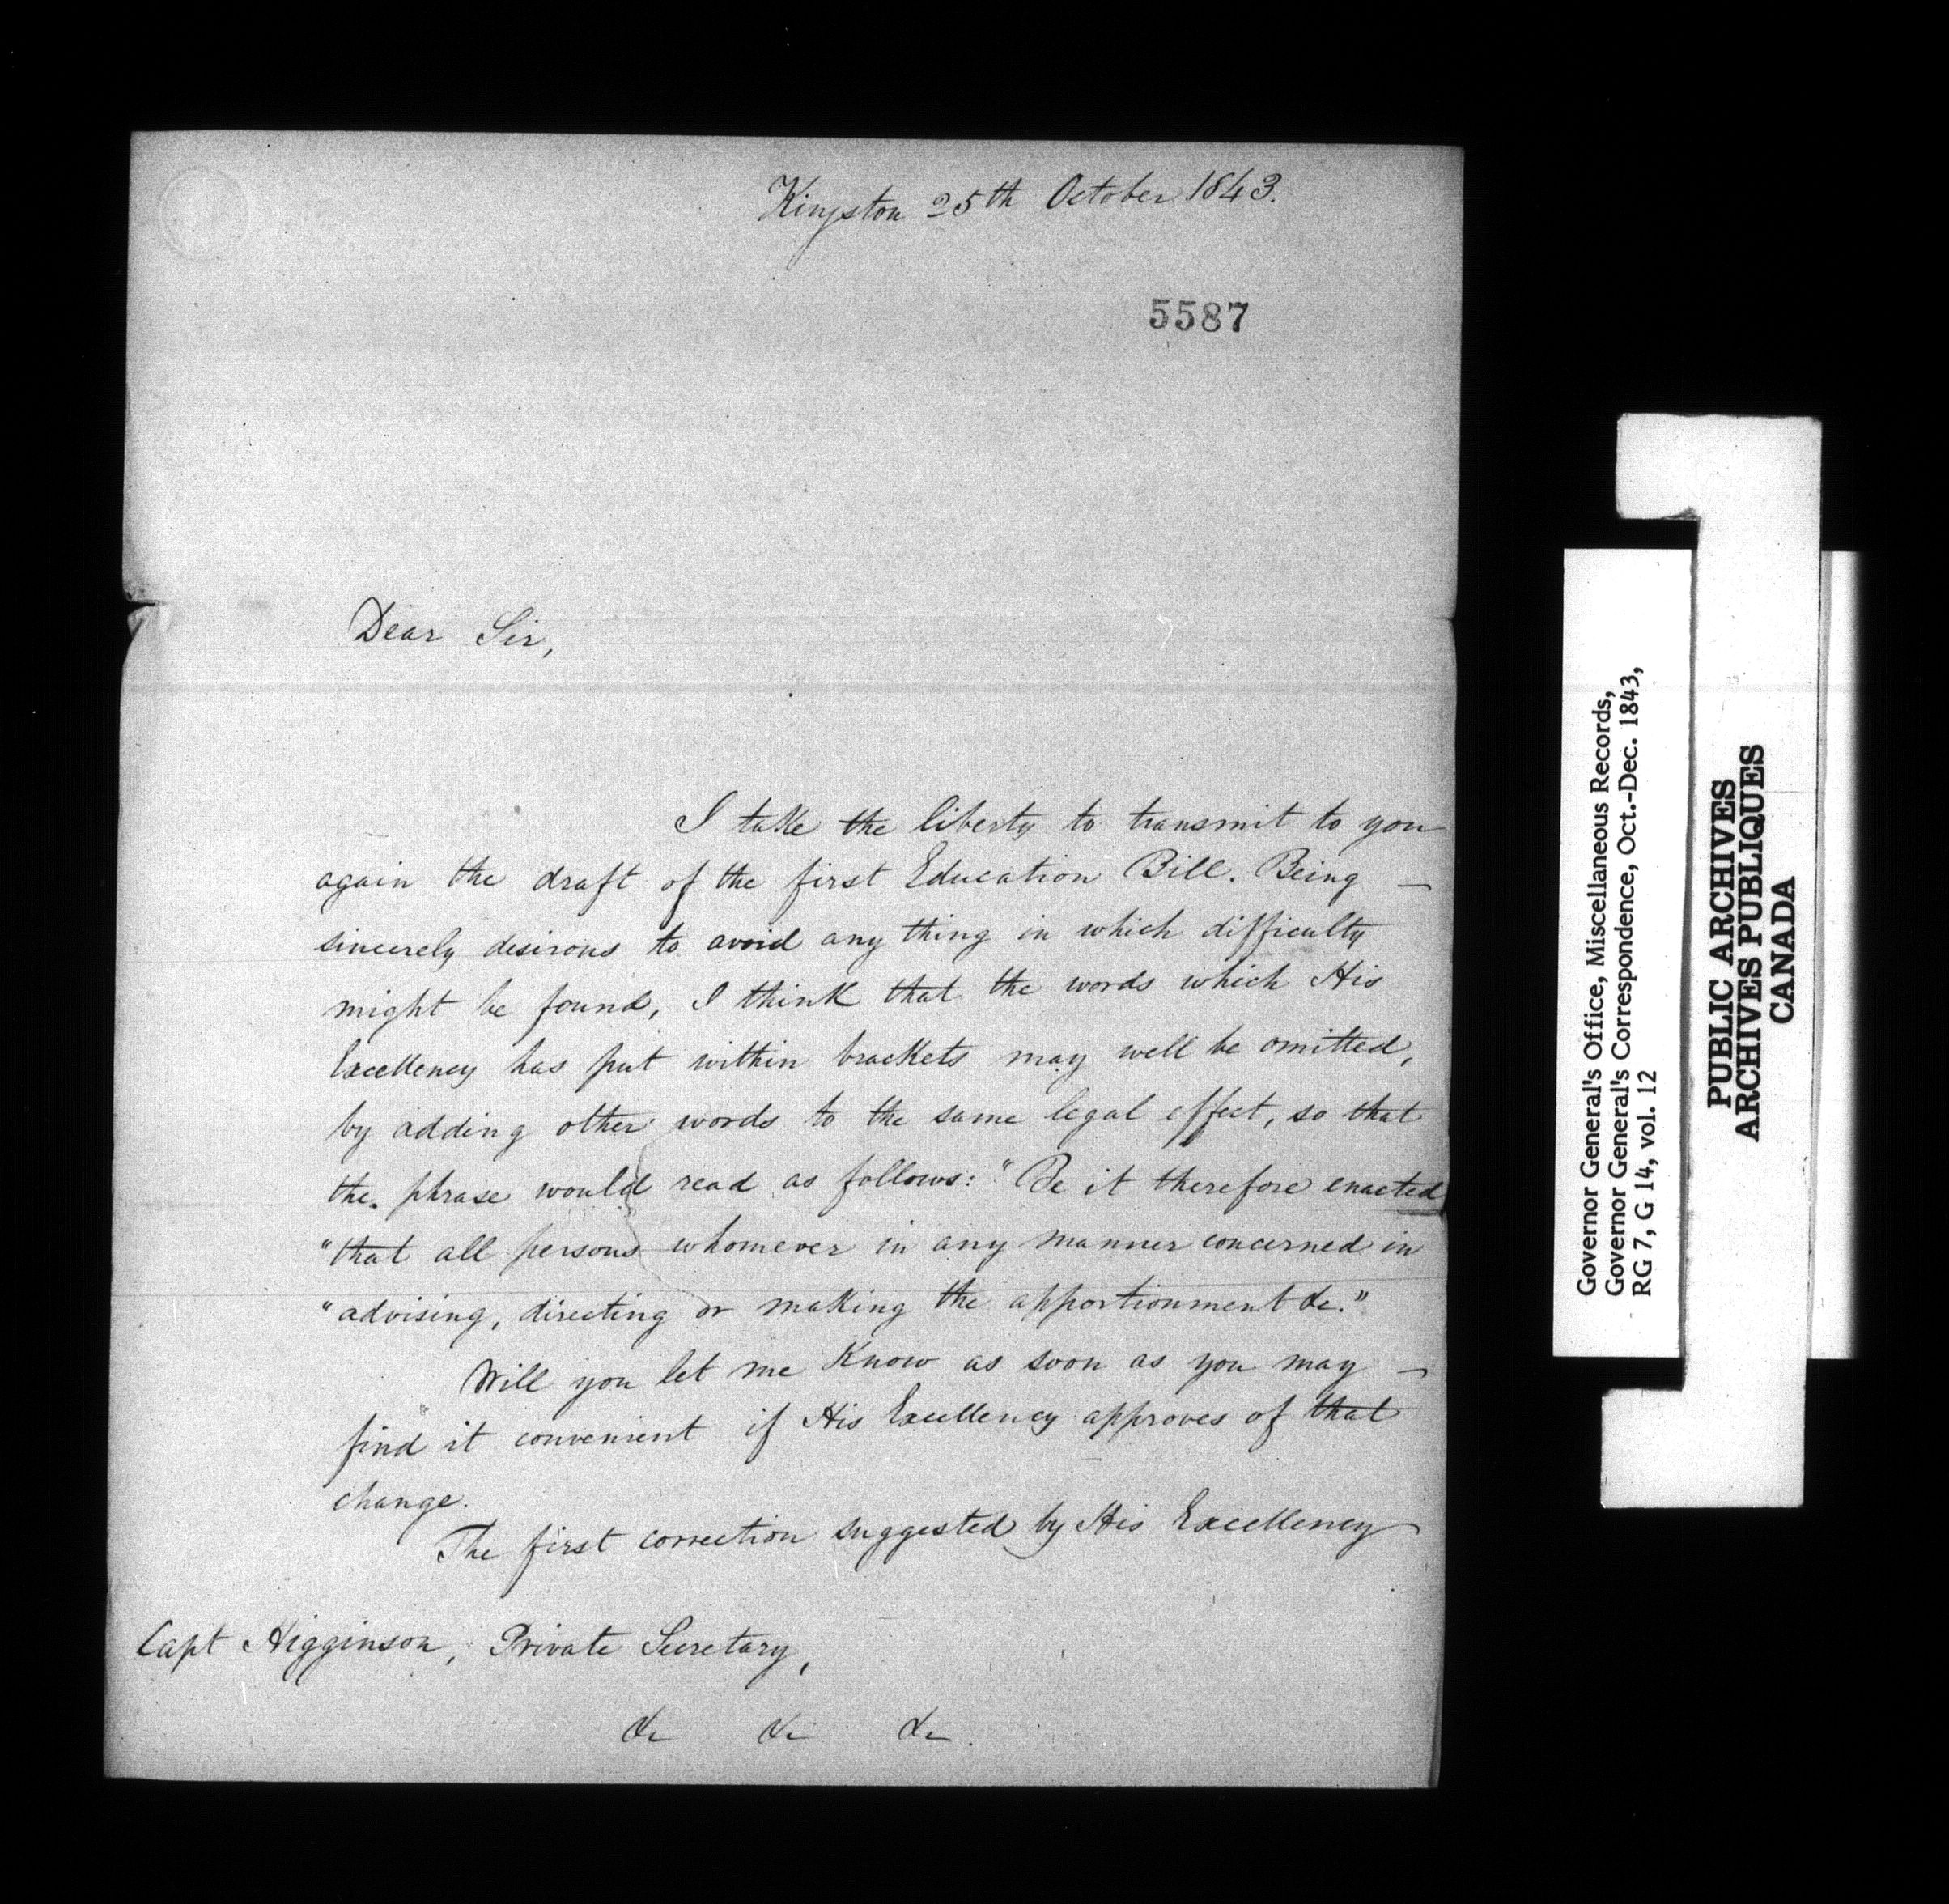 Kingston 25th October 1843.
5587
Dear Sir,
I take the liberty to transmit to you
again the draft of the first Education Bill. Being –
sincerely desirous to avoid any thing in which difficulty
might be found, I think that the words which His
Excellency has put within brackets may well be omitted,
by adding other words to the same legal effect, so that
the phrase would read as follows: "Be it therefore enacted
"that all persons whomever in any manner concerned in
"advising, directing or making the apportionment &c."
Will you let me Know as soon as you may –
find it convenient if His Excellency approves of that
change.
The first correction suggested by His Excellency
Capt Higginson, Private Secretary,
&c &c &c.
Governor General's Office, Miscellaneous Records,
Governor General's Correspondence, Oct.-Dec. 1843,
RG 7, G 14, vol. 12
PUBLIC ARCHIVES
ARCHIVES PUBLIQUES
CANADA